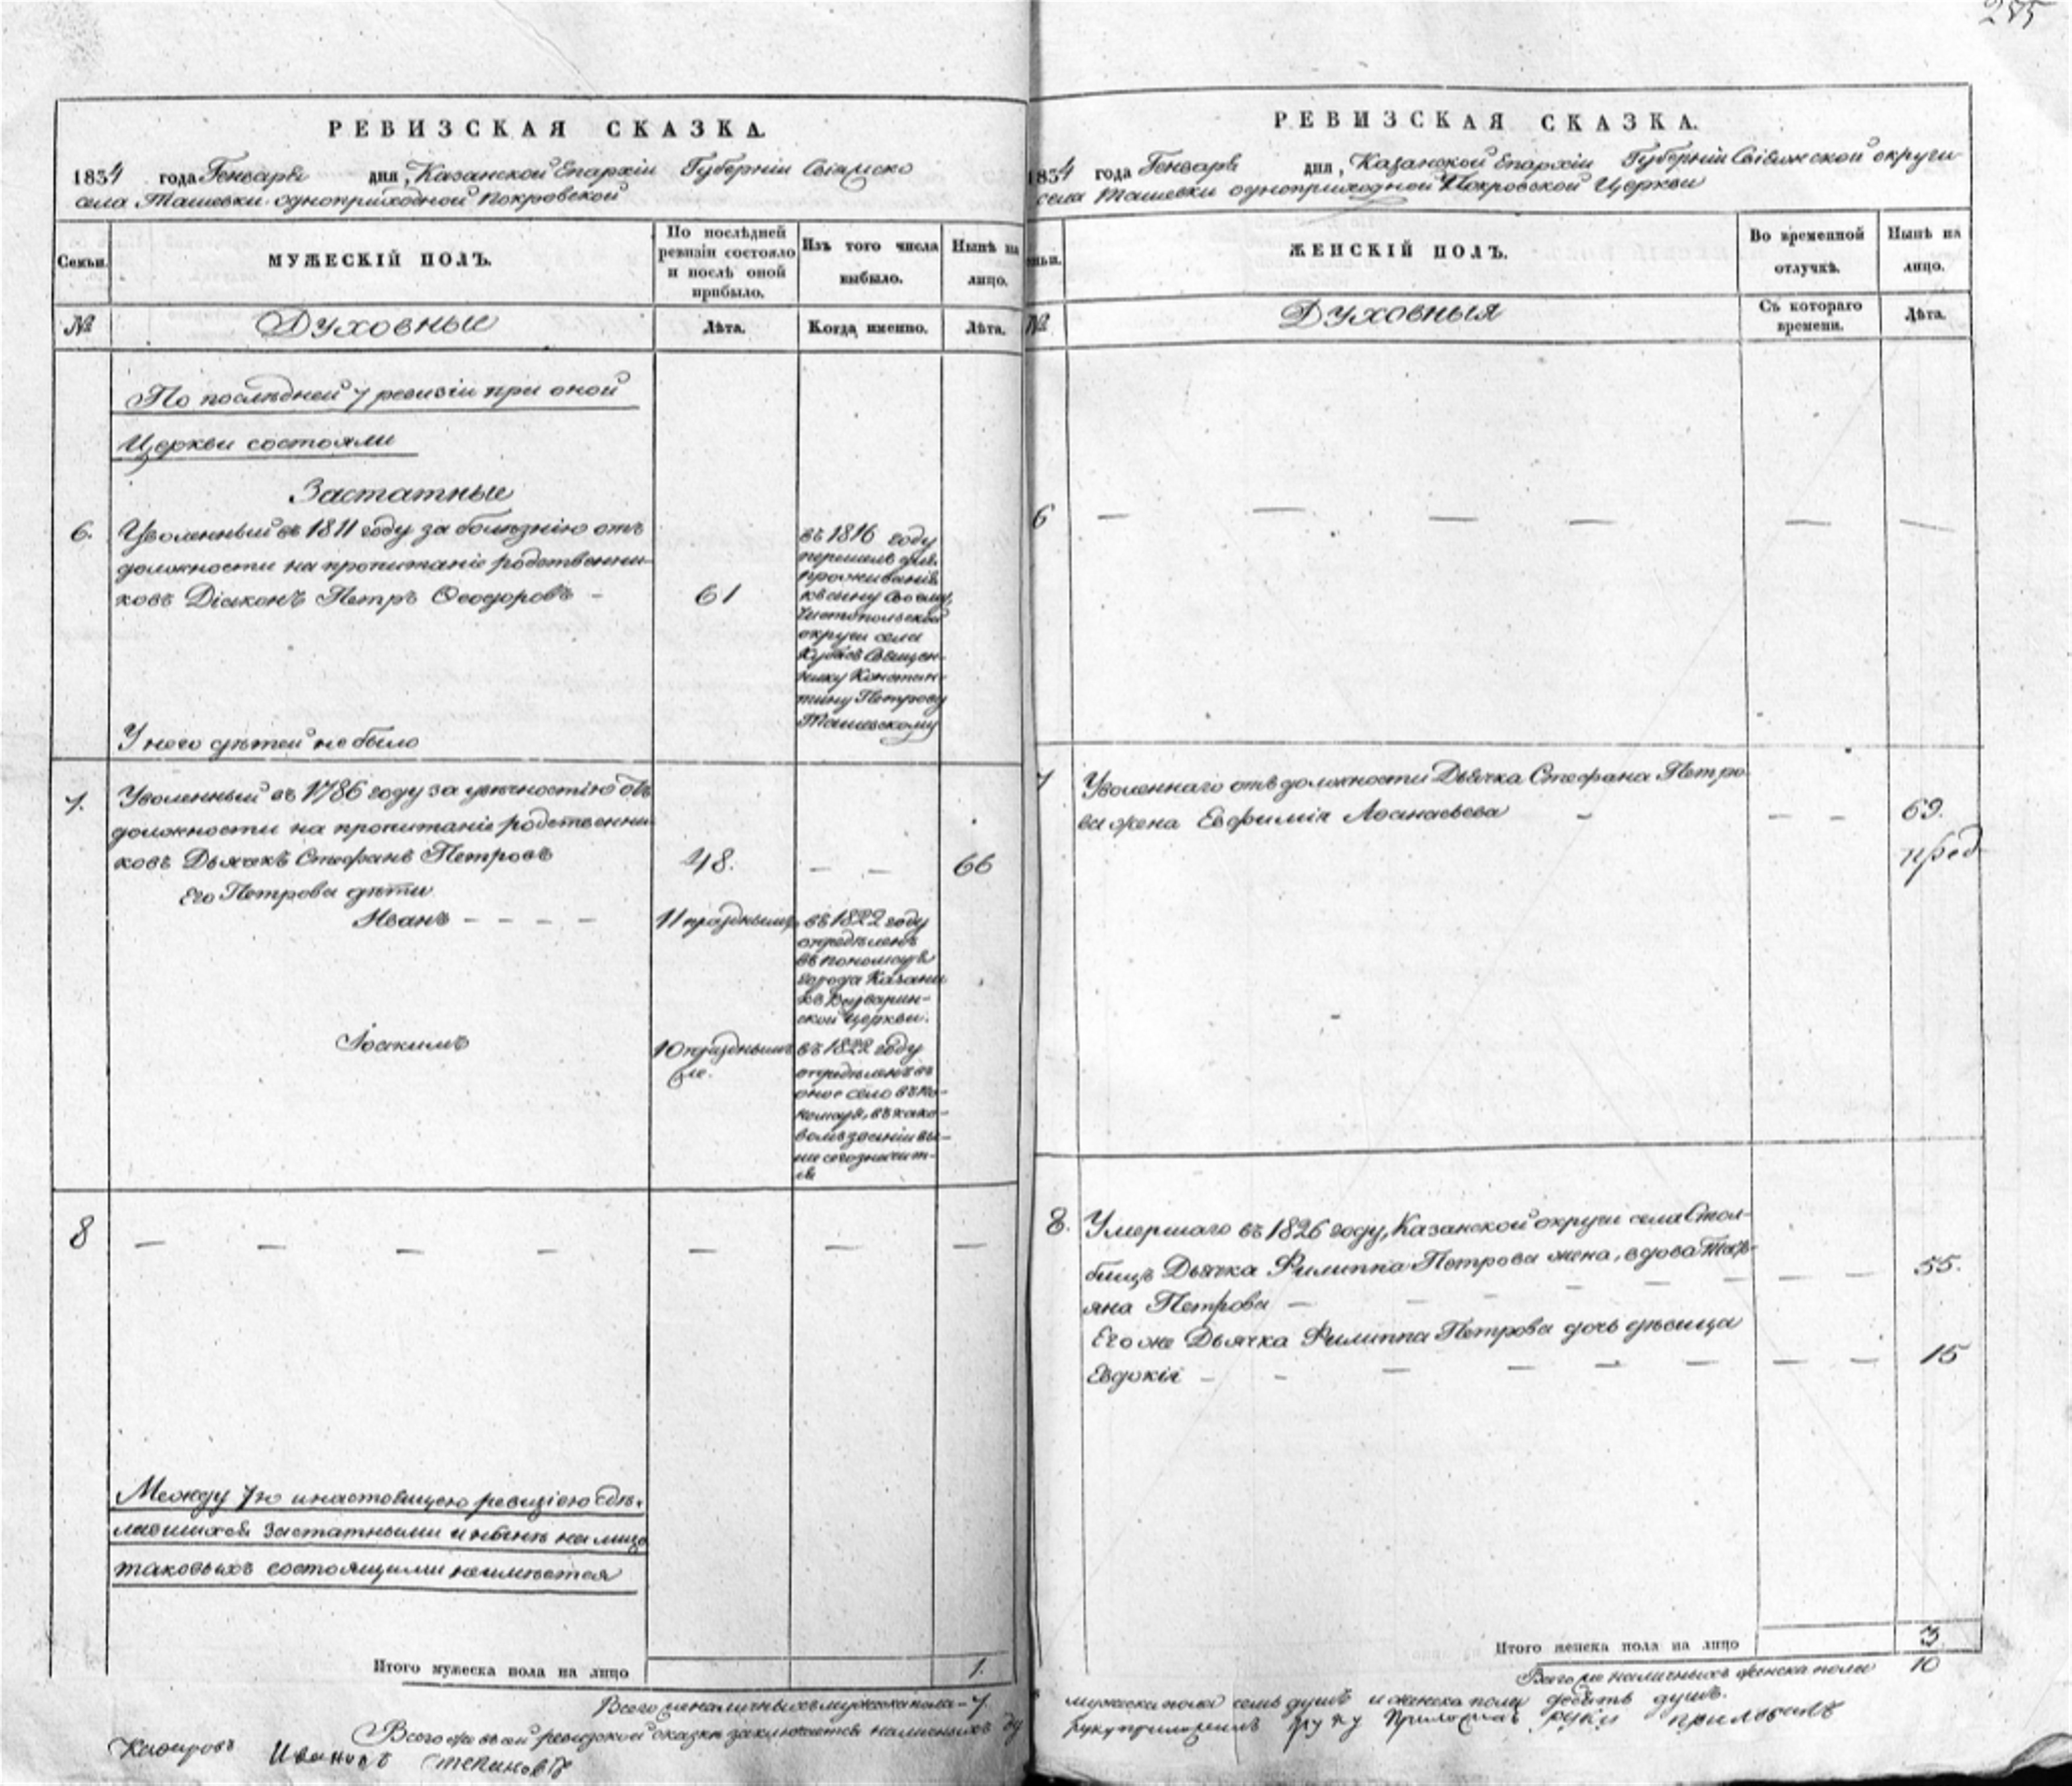 285
РЕВИЗСКАЯ СКАЗКА.
1834 года Генваря дня, Казанской Епархіи Губерніи Свіяжско
села Ташевки одноприходной Покровской
Семьи. МУЖЕСКІЙ ПОЛЪ. По послѣдней ревизіи состояло и послѣ оной прибыло. Изъ того числа выбыло. Нынѣ на лицо.
№ Духовные Лѣта. Когда именно. Лѣта.
По послѣдней 7 ревизіи при оной
Церкви состояли
Застатные
6. Уволенный въ 1811 году за болѣзнію отъ
должности на пропитаніе родственни-
ковъ Діаконъ Петръ Ѳеодоровъ – 61
въ 1816 году
перешелъ для
проживанія
къ сыну своему,
Чистопольской
округи села
Священ-
нику Констан-
тину Петрову
Ташевскому
У него дѣтей не было
7. Уволенный въ 1786 году за увѣчностію отъ
должности на пропитаніе родственни-
ковъ Дьячекъ Стефанъ Петровъ 48. — — 66
Его Петрова дѣти
Иванъ – – – – 11
въ 1822 году
опредѣленъ
въ пономаря
города Казани
къ
ской церкви.
Іоакимъ 10
въ 1822 году
опредѣленъ въ
оное село въ по-
номаря, въ како-
вомъ званіи вы-
ше сего значит-
ся
8 — — — — — — —
Между 7ю и настоящею ревизіею сдѣ-
лавшихся застатными и нынѣ на лицо
таковыхъ состоящими неимѣется
Итого мужеска пола на лицо 1.
Всего наличныхъ мужеска пола – 7.
Всего въ сей ревизской сказки заключается наличныхъ ду
Иванов Степановъ
РЕВИЗСКАЯ СКАЗКА.
1834 года Генваря дня, Казанской Епархіи Губерніи Свіяжской округи
села Ташевки одноприходной Покровской Церкви
ЖЕНСКІЙ ПОЛЪ. Во временной отлучкѣ. Нынѣ на лицо.
№ Духовныя Съ котораго времени. Лѣта.
6 — — — — — —
7 Уволеннаго отъ должности Дьячка Стефана Петро-
ва жена Евфимія Аѳанасьева – — — 69.
8. Умершаго въ 1826 году, Казанской округи села Стол-
бищъ Дьячка Филиппа Петрова жена, вдова Тать-
яна Петрова — — — 55.
Его же Дьячка Филиппа Петрова дочь дѣвица
Евдокія – – — — — — — 15
Итого женска пола на лицо 3
Всего наличныхъ женска пола 10
мужеска пола семь душъ и женска пола душъ.
руку приложилъ